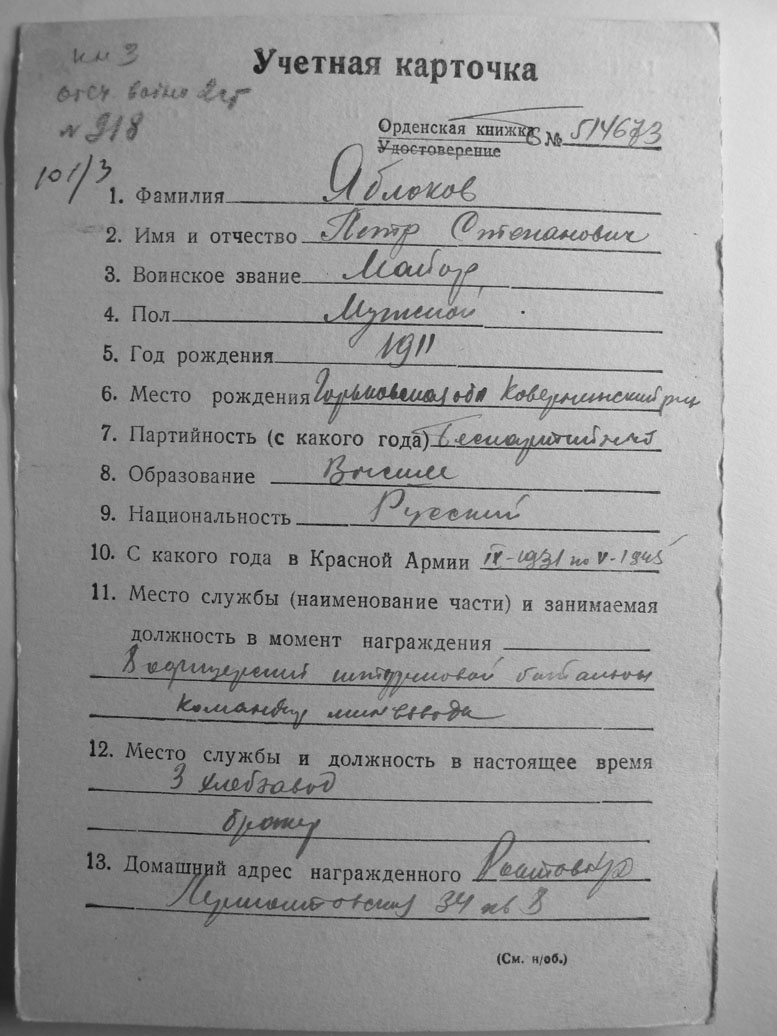 Учетная карточка
отеч. войны 2 ст
№ 918
101/3
Орденская книжка Б № 514673
Удостоверение
1. Фамилия Яблоков
2. Имя и отчество Петр Степанович
3. Воинское звание Майор
4. Пол Мужской
5. Год рождения 1911
6. Место рождения Горьковская обл Ковернинский р-н
7. Партийность (с какого года) Беспартийный
8. Образование Высшее
9. Национальность Русский
10. С какого года в Красной Армии IX-1931 по V-1945
11. Место службы (наименование части) и занимаемая
должность в момент награждения
8 офицерский штурмовой батальон
командир минвзвода
12. Место службы и должность в настоящее время
3 Хлебзавод
13. Домашний адрес награжденного Ростов н/Д
Лермонтовская 34 кв 8
(См. н/об.)